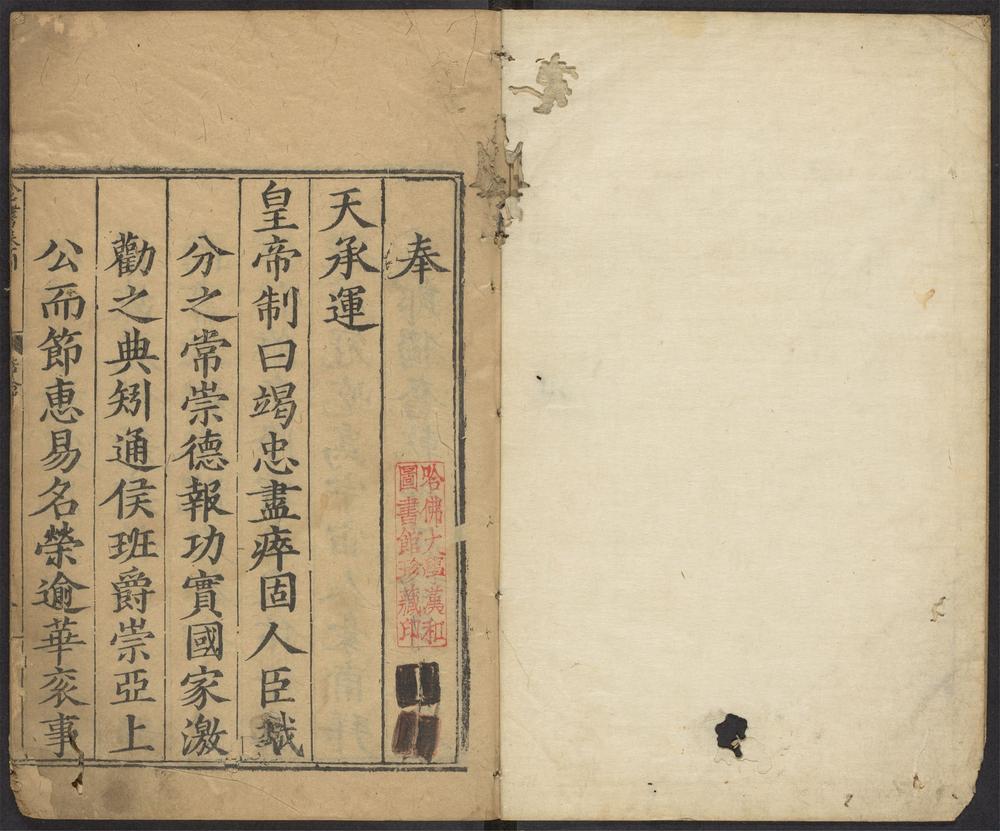 奉
天承運
皇帝制曰竭忠盡瘁固人臣職
分之常崇德報功實國家激
勸之典矧通侯班爵崇亞上
公而節惠易名榮逾華衮事
哈佛大學漢和
圖書館珍藏印